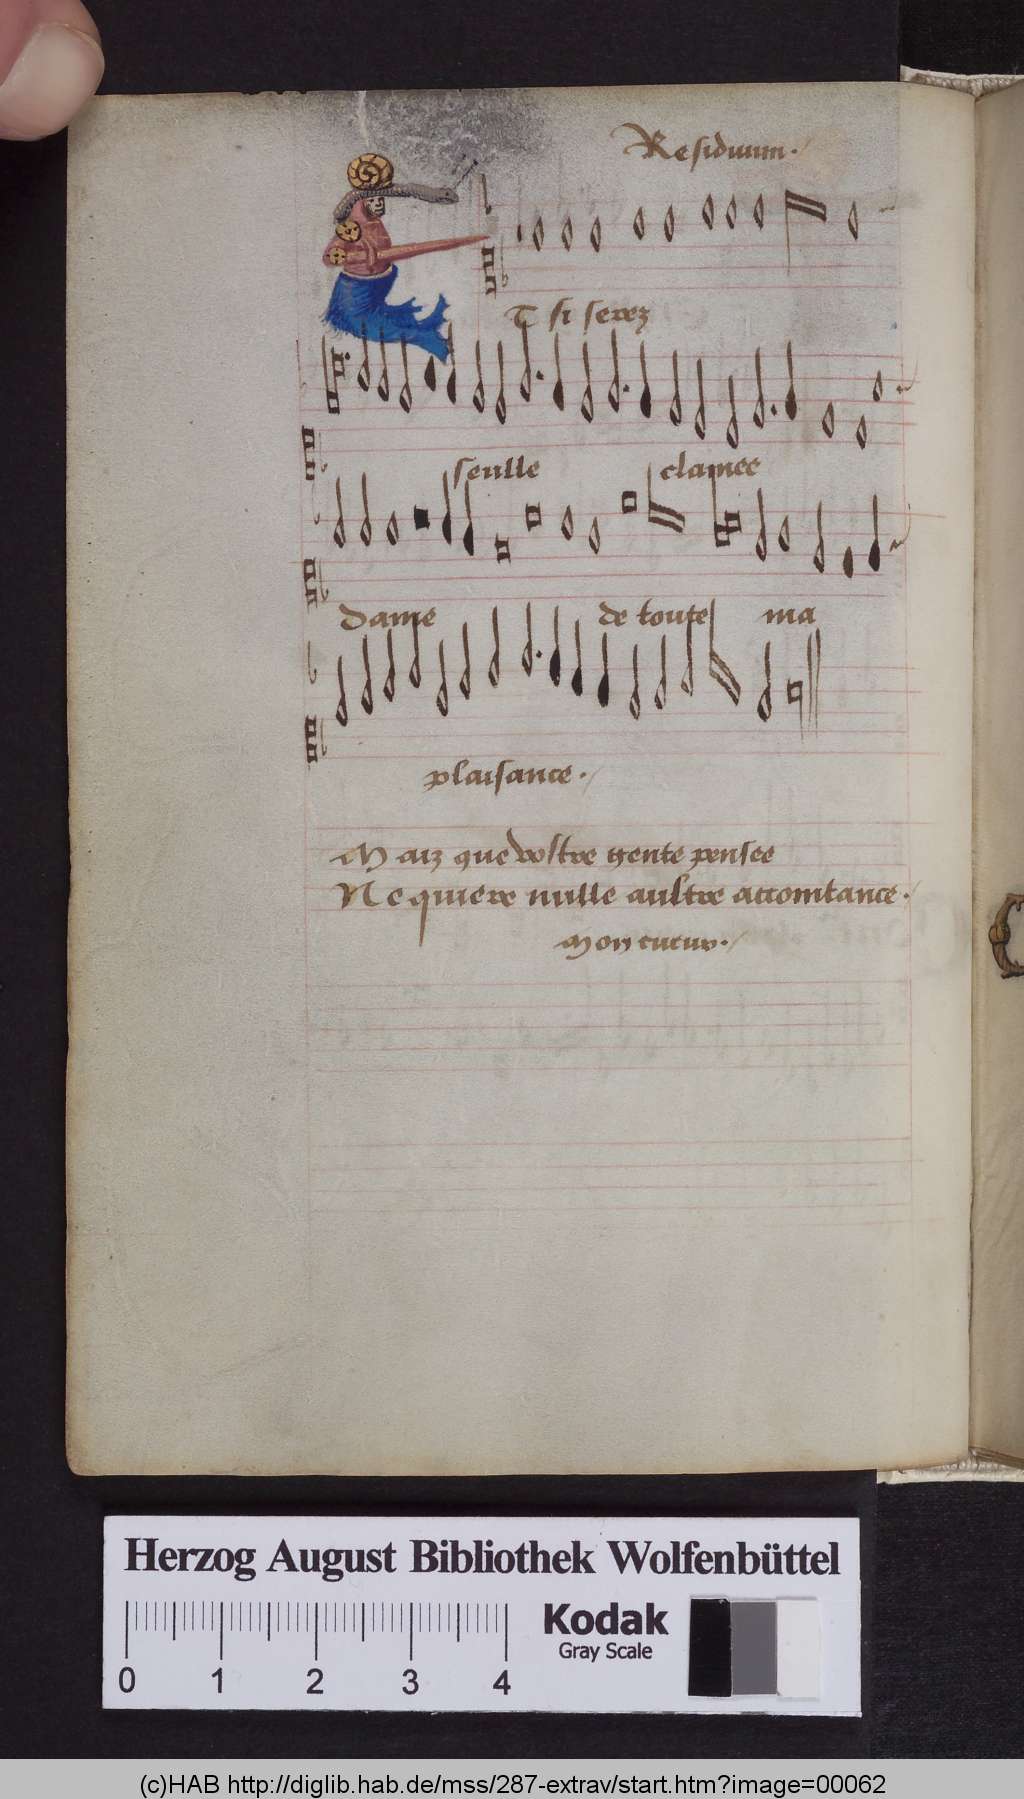 Residuum.
T si serez
seulle clamee
dame de toute ma
plaisance.
Maiz que vostre gente pensee
Ne quiere nulle aultre accointance.
Mon cueur.
Herzog August Bibliothek Wolfenbüttel
0 1 2 3 4
Kodak
Gray Scale
(c)HAB http://diglib.hab.de/mss/287-extrav/start.htm?image=00062